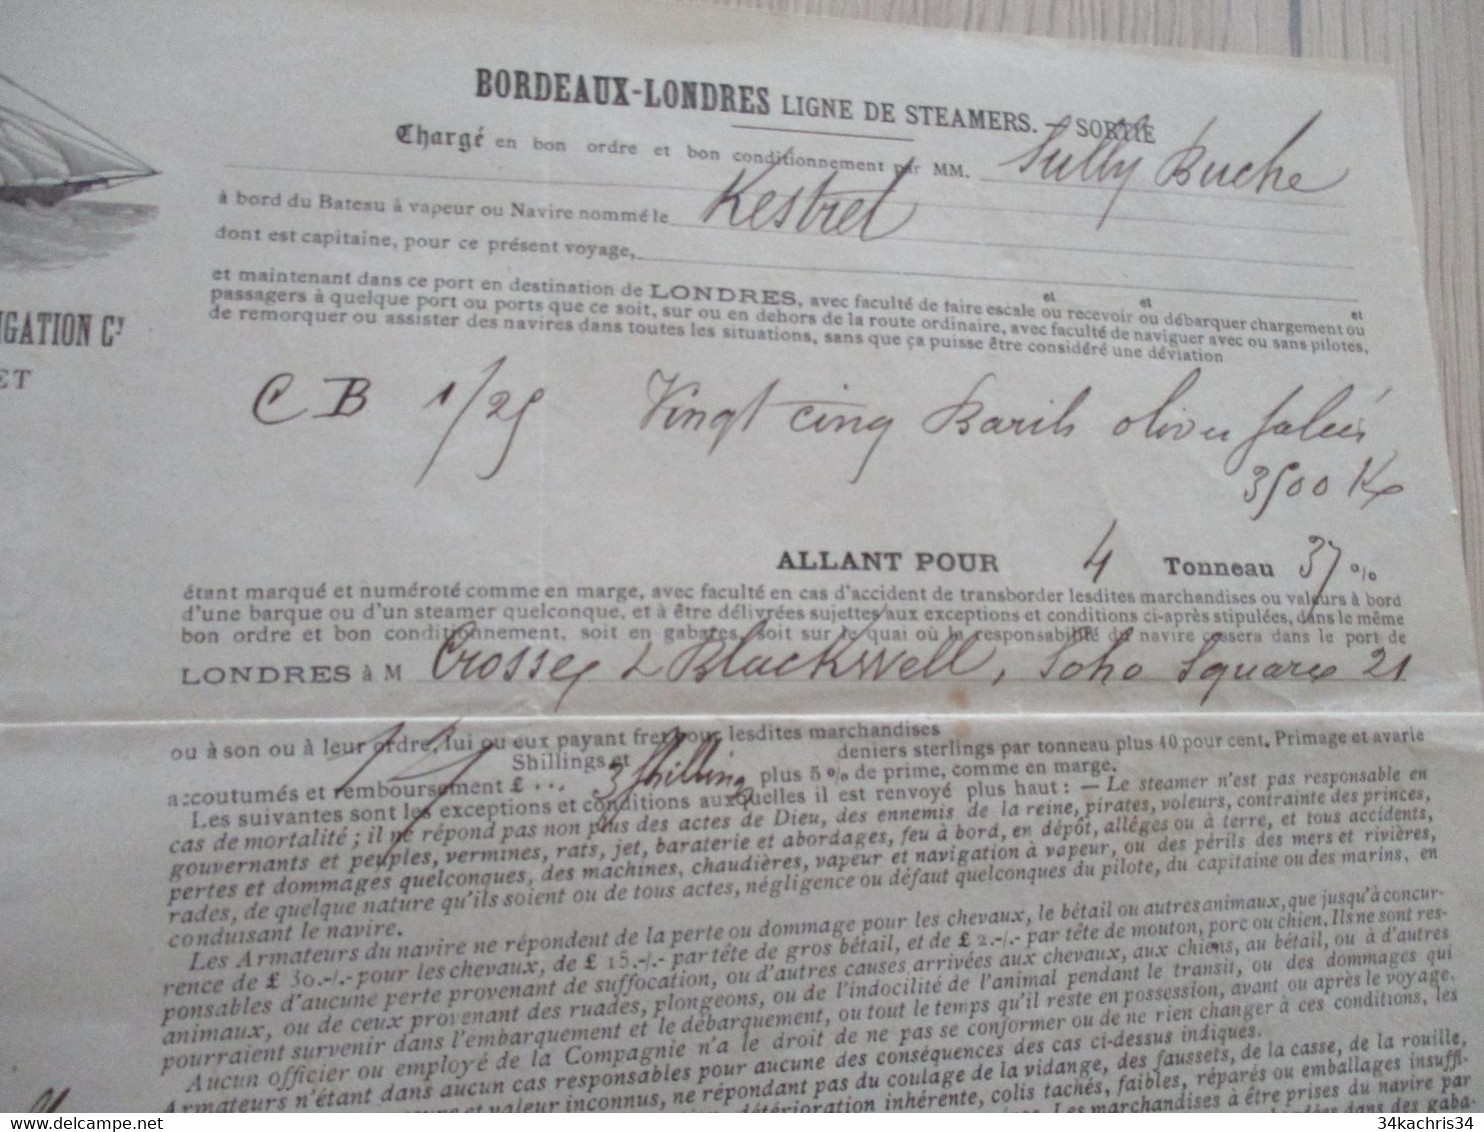 BORDEAUX-LONDRES LIGNE DE STEAMERS. — SORTIE
Chargé en bon ordre et bon conditionnement par MM. Sully Buche
à bord du Bateau à vapeur ou Navire nommé le Kestrel
dont est capitaine, pour ce présent voyage,
et maintenant dans ce port en destination de LONDRES, avec faculté de faire escale et ou recevoir et ou débarquer chargement et ou
passagers à quelque port ou ports que ce soit, sur ou en dehors de la route ordinaire, avec faculté de naviguer avec ou sans pilotes,
de remorquer ou assister des navires dans toutes les situations, sans que ça puisse être considéré une déviation
IGATION Cy
ET
CB 1/25 Vingt cinq Barils olives salées
3500 K
ALLANT POUR 4 Tonneau 37 %
étant marqué et numéroté comme en marge, avec faculté en cas d'accident de transborder lesdites marchandises ou valeurs à bord
d'une barque ou d'un steamer quelconque, et à être délivrées sujettes aux exceptions et conditions ci-après stipulées, dans le même
bon ordre et bon conditionnement, soit en gabares, soit sur le quai où la responsabilité du navire cessera dans le port de
LONDRES à M Crosse & Blackwell, Soho Square 21
ou à son ou à leur ordre, lui ou eux payant fret pour lesdites marchandises
Shillings et deniers sterlings par tonneau plus 10 pour cent. Primage et avarie
accoutumés et remboursement £ ... 3 shilling plus 5 % de prime, comme en marge.
Les suivantes sont les exceptions et conditions auxquelles il est renvoyé plus haut : — Le steamer n'est pas responsable en
cas de mortalité ; il ne répond pas non plus des actes de Dieu, des ennemis de la reine, pirates, voleurs, contrainte des princes,
gouvernants et peuples, vermines, rats, jet, baraterie et abordages, feu à bord, en dépôt, allèges ou à terre, et tous accidents,
pertes et dommages quelconques, des machines, chaudières, vapeur et navigation à vapeur, ou des périls des mers et rivières,
rades, de quelque nature qu'ils soient ou de tous actes, négligence ou défaut quelconques du pilote, du capitaine ou des marins, en
conduisant le navire.
Les Armateurs du navire ne répondent de la perte ou dommage pour les chevaux, le bétail ou autres animaux, que jusqu'à concur-
rence de £ 30.-/.- pour les chevaux, de £ 15.-/.- par tête de gros bétail, et de £ 2.-/.- par tête de mouton, porc ou chien. Ils ne sont res-
ponsables d'aucune perte provenant de suffocation, ou d'autres causes arrivées aux chevaux, aux chiens, au bétail, ou à d'autres
animaux, ou de ceux provenant des ruades, plongeons, ou de l'indocilité de l'animal pendant le transit, ou des dommages qui
pourraient survenir dans l'embarquement et le débarquement, ou tout le temps qu'il reste en possession, avant ou après le voyage.
Aucun officier ou employé de la Compagnie n'a le droit de ne pas se conformer ou de ne rien changer à ces conditions, les
Armateurs n'étant dans aucun cas responsables pour aucune des conséquences des cas ci-dessus indiqués.
et valeur inconnus, ne répondant pas du coulage de la vidange, des faussets, de la casse, de la rouille,
détérioration inhérente, colis tachés, faibles, réparés ou emballages insuffi-
Les marchandises à être prises du navire par
dans des gaba-
34kachris34 34kachris34